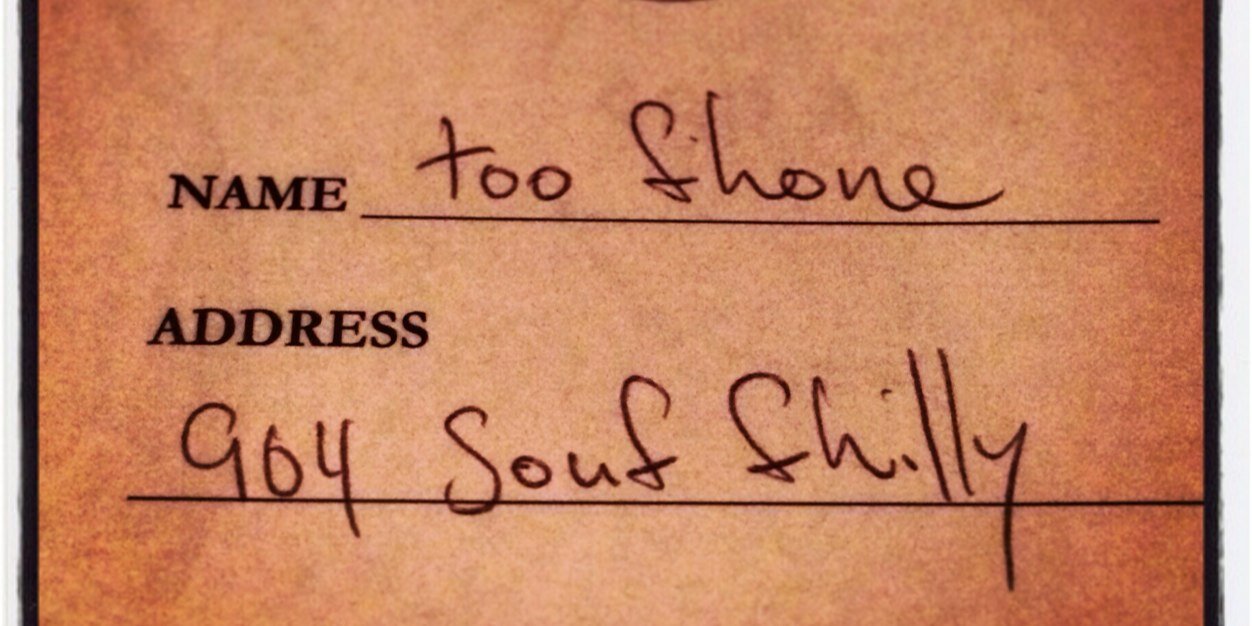 NAME too fhone
ADDRESS
904 Souf fhilly